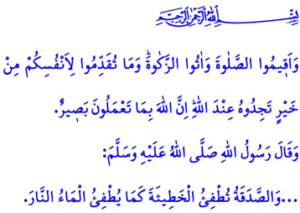 بِسْمِ اللهِ الرَّحْمٰنِ الرَّحِيمِ
وَاَقٖيمُوا الصَّلٰوةَ وَاٰتُوا الزَّكٰوةَ وَمَا تُقَدِّمُوا لِاَنْفُسِكُمْ مِنْ
خَيْرٍ تَجِدُوهُ عِنْدَ اللهِ اِنَّ اللهَ بِمَا تَعْمَلُونَ بَصٖيرٌ.
وَقَالَ رَسُولُ اللهِ صَلَّى اللهُ عَلَيْهِ وَسَلَّمَ:
...وَالصَّدَقَةُ تُطْفِئُ الْخَطِيئَةَ كَمَا يُطْفِئُ الْمَاءُ النَّارَ.